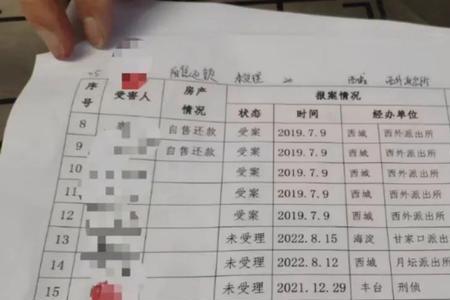 受害人 房产情况 报案情况
序号 状态 时间 经办单位
8 自售还款 受案 2019.7.9 西城 西外派出所
9 自售还款 受案 2019.7.9 西城 西外派出所
10 受案 2019.7.9 西城 西外派出所
11 受案 2019.7.9 西城 西外派出所
12 受案 2019.7.9 西城 西外派出所
13 未受理 2022.8.15 海淀 甘家口派出
14 未受理 2022.8.12 西城 月坛派出所
15 未受理 2021.12.29 丰台 刑侦